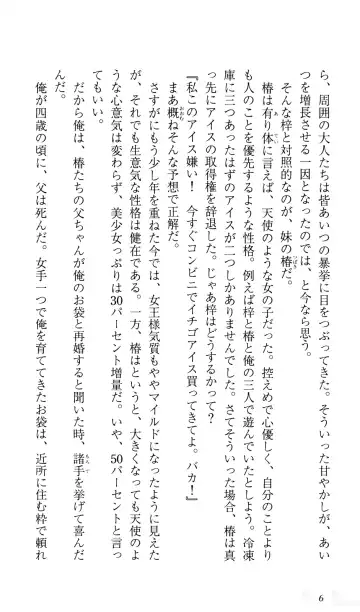 ら、周囲の大人たちは皆あいつの暴挙に目をつぶってきた。そういった甘やかしが、あい
つを増長させる一因となったのでは、と今なら思う。
そんな梓と対照的なのが、妹の椿だ。
椿は有り体に言えば、天使のような女の子だった。控えめで心優しく、自分のことより
も人のことを優先するような性格。例えば梓と椿と俺の三人で遊んでいたとしよう。冷凍
庫に三つあったはずのアイスが二つしかありませんでした。さてそういった場合、椿は真
っ先にアイスの取得権を辞退した。じゃあ梓はどうするかって?
『私このアイス嫌い! 今すぐコンビニでイチゴアイス買ってきてよ。バカ!』
まあ概ねそんな予想で正解だ。
さすがにもう少し年を重ねた今では、女王様気質もややマイルドになったように見えた
が、それでも生意気な性格は健在である。一方、椿はというと、大きくなっても天使のよ
うな心意気は変わらず、美少女っぷりは30パーセント増量だ。いや、50パーセントと言っ
てもいい。
だから俺は、椿たちの父ちゃんが俺のお袋と再婚すると聞いた時、諸手を挙げて喜んだ
んだ。
俺が四歳の頃に、父は死んだ。女手一つで俺を育ててきたお袋は、近所に住む粋で頼れ
6